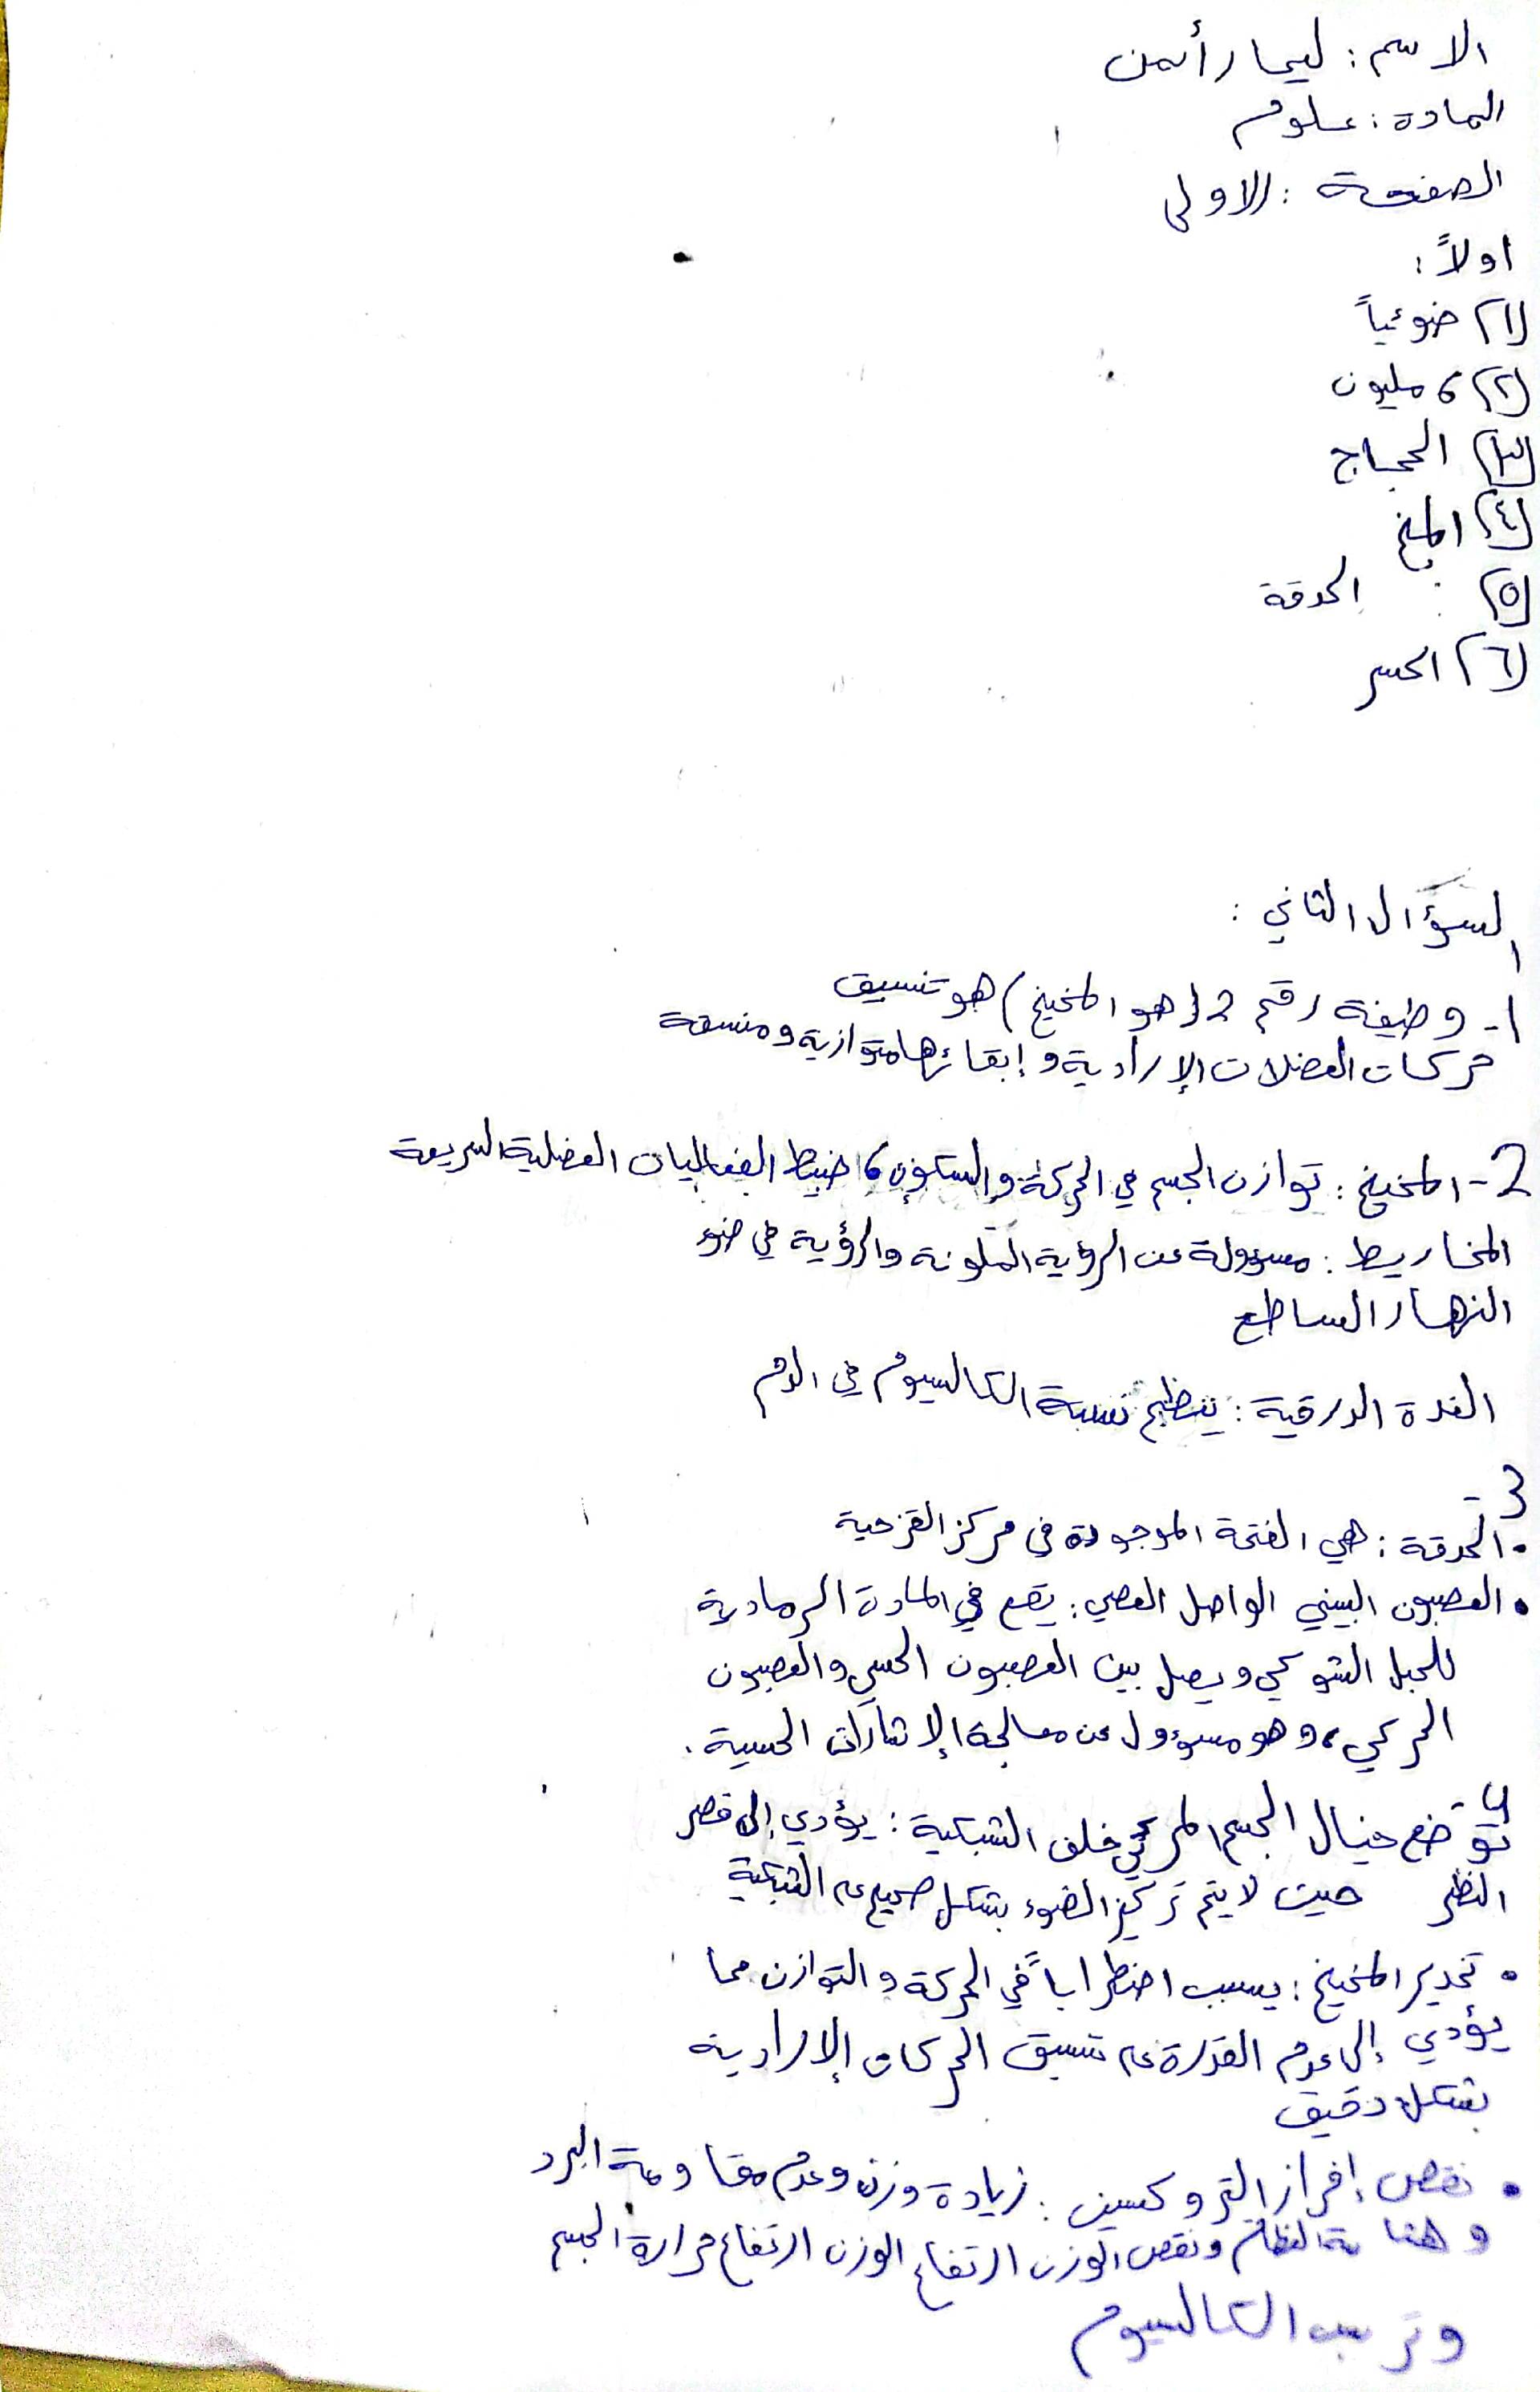 الاسم : ليمار أيمن
المادة : علوم
الصفحة : الاولى
اولاً :
(١) ضوئياً
(٢) 6 مليون
(٣) الحجاج
(٤) المخ
(٥) الحدقة
(٦) الحسر
السؤال الثاني :
1- وظيفة رقم 2 (هو المخيخ) هو تنسيق
حركات العضلات الإرادية و إبقائها متوازية ومنسقة
2- المخيخ : توازن الجسم في الحركة والسكون، ضبط الفعاليات العضلية السريعة
المخاريط : مسؤولة عن الرؤية الملونة والرؤية في ضوء
النهار الساطع
الغدة الدرقية : ينظم نسبة الكالسيوم في الدم
3-
• الحدقة : هي الفتحة الموجودة في مركز القزحية
• العصبون البيني الواصل العصبي : يقع في المادة الرمادية
للحبل الشوكي ويصل بين العصبون الحسي والعصبون
الحركي، وهو مسؤول عن معالجة الإشارات الحسية .
4
توضع خيال الجسم المرئي خلف الشبكية : يؤدي إلى قصر
النظر حيث لا يتم تركيز الضوء بشكل صحيح على الشبكية
• تخدير المخيخ : يسبب اضطراباً في الحركة والتوازن مما
يؤدي إلى عدم القدرة على تنسيق الحركات الإرادية
بشكل دقيق
• نقص إفراز التروكسين : زيادة وزن وعدم مقاومة البرد
العظام ونقص الوزن ارتفاع الوزن ارتفاع حرارة الجسم
وترسب الكالسيوم